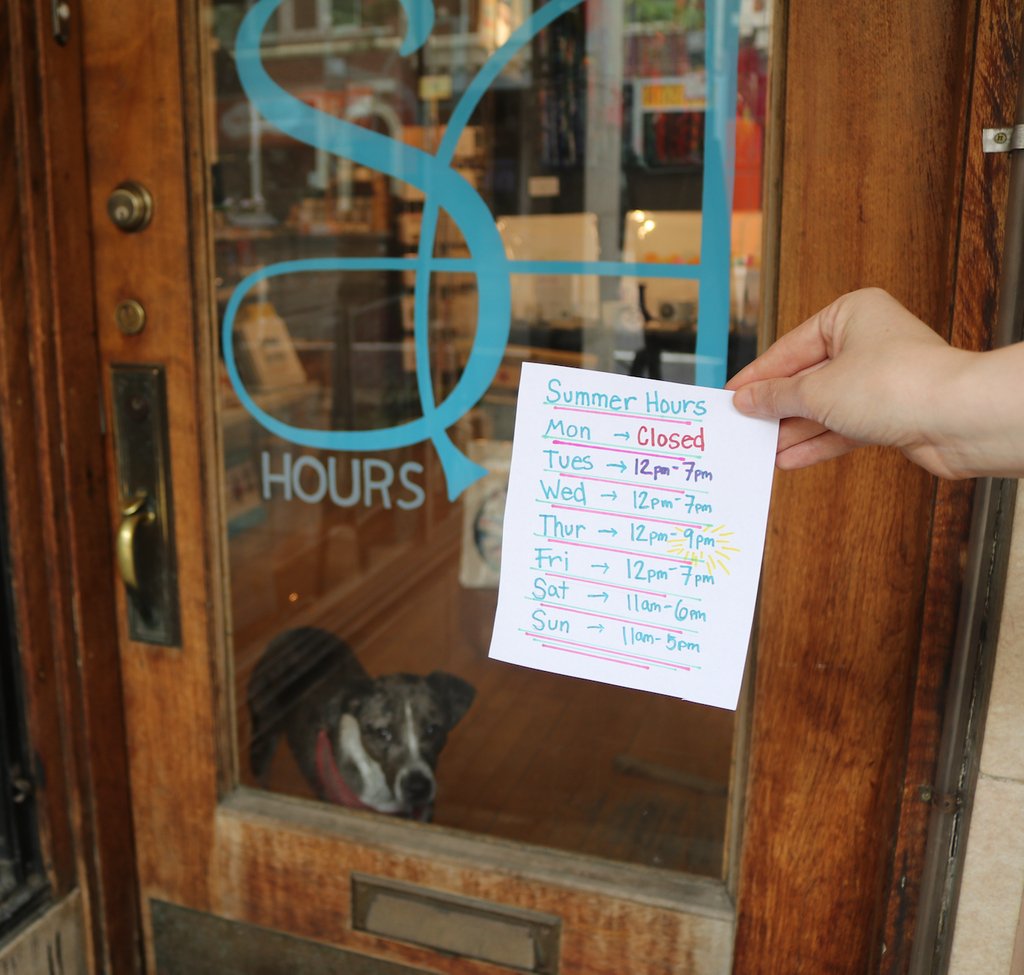 HOURS
Summer Hours
Mon → Closed
Tues → 12pm-7pm
Wed → 12pm-7pm
Thur → 12pm-9pm
Fri → 12pm-7pm
Sat → 11am-6pm
Sun → 11am-5pm